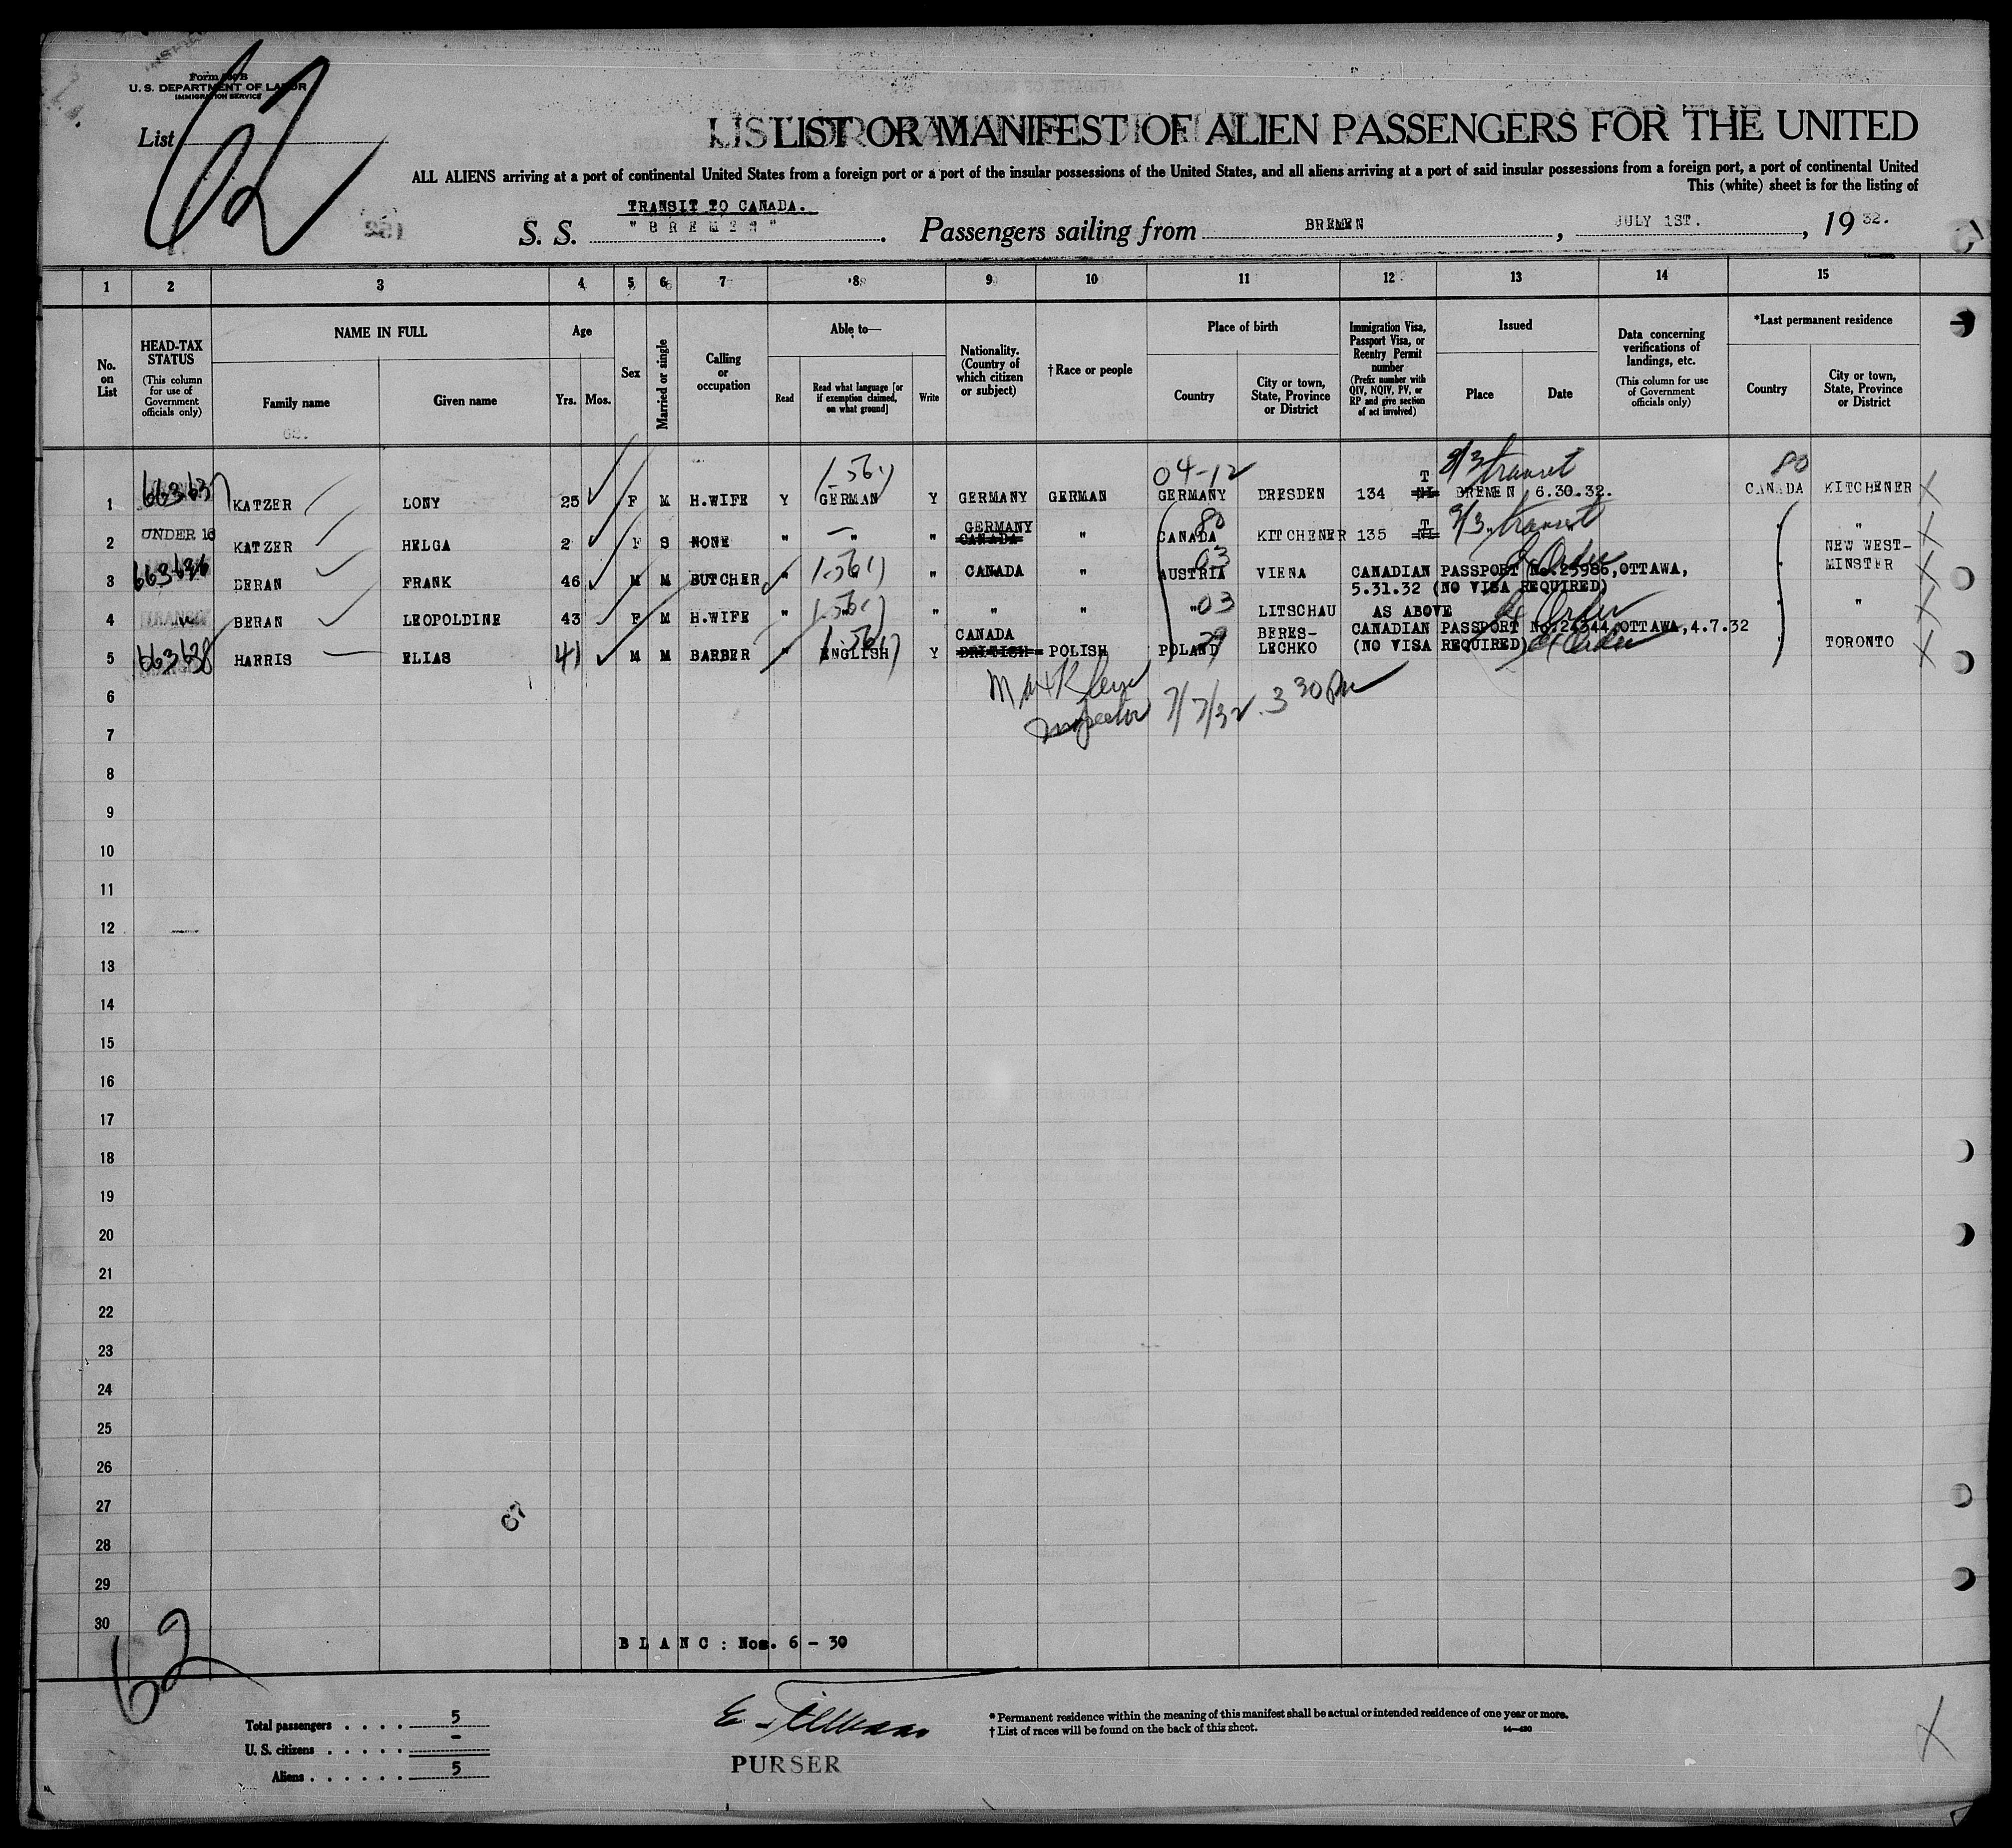 Form 500 B
U. S. DEPARTMENT OF LABOR
IMMIGRATION SERVICE
List 62
LIST OR MANIFEST OF ALIEN PASSENGERS FOR THE UNITED
ALL ALIENS arriving at a port of continental United States from a foreign port or a port of the insular possessions of the United States, and all aliens arriving at a port of said insular possessions from a foreign port, a port of continental United
This (white) sheet is for the listing of
TRANSIT TO CANADA.
S. S. "BREMEN". Passengers sailing from BREMEN, JULY 1ST., 19 32.
1 2 3 4 5 6 7 8 9 10 11 12 13 14 15
No. on List
HEAD-TAX STATUS
(This column for use of Government officials only)
NAME IN FULL
Family name
Given name
Age
Yrs. Mos.
Sex
Married or single
Calling or occupation
Able to—
Read
Read what language [or if exemption claimed, on what ground]
Write
Nationality. (Country of which citizen or subject)
† Race or people
Place of birth
Country
City or town, State, Province or District
Immigration Visa, Passport Visa, or Reentry Permit number
(Prefix number with QIV, NQIV, PV, or RP and give section of act involved)
Issued
Place
Date
Data concerning verifications of landings, etc.
(This column for use of Government officials only)
*Last permanent residence
Country
City or town, State, Province or District
04-12 T 8/3 transit 80
1 KATZER LONY 25 F M H.WIFE Y GERMAN Y GERMANY GERMAN GERMANY DRESDEN 134 NL BREMEN 6.30.32. CANADA KITCHENER
UNDER 16 GERMANY 80 T transit
2 KATZER HELGA 2 F S NONE " " " CANADA " CANADA KITCHENER 135 NL " "
663636 03 NEW WEST-
3 BERAN FRANK 46 M M BUTCHER " " " CANADA " AUSTRIA VIENA CANADIAN PASSPORT No.25986, OTTAWA, " MINSTER
5.31.32 (NO VISA REQUIRED)
4 BERAN LEOPOLDINE 43 F M H.WIFE " " " " " " 03 LITSCHAU AS ABOVE " "
CANADA BERES- CANADIAN PASSPORT No.24344, OTTAWA, 4.7.32
5 663638 HARRIS ELIAS 41 M M BARBER " ENGLISH Y BRITISH POLISH POLAND LECHKO (NO VISA REQUIRED) " TORONTO
6 Inspector 7/7/32. 3 30 PM
7
8
9
10
11
12
13
14
15
16
17
18
19
20
21
22
23
24
25
26
27
28
29
30
BLANC: Nos. 6 - 30
62
Total passengers . . . . 5
U. S. citizens . . . . . -
Aliens . . . . . . 5
PURSER
* Permanent residence within the meaning of this manifest shall be actual or intended residence of one year or more.
† List of races will be found on the back of this sheet.
14—430